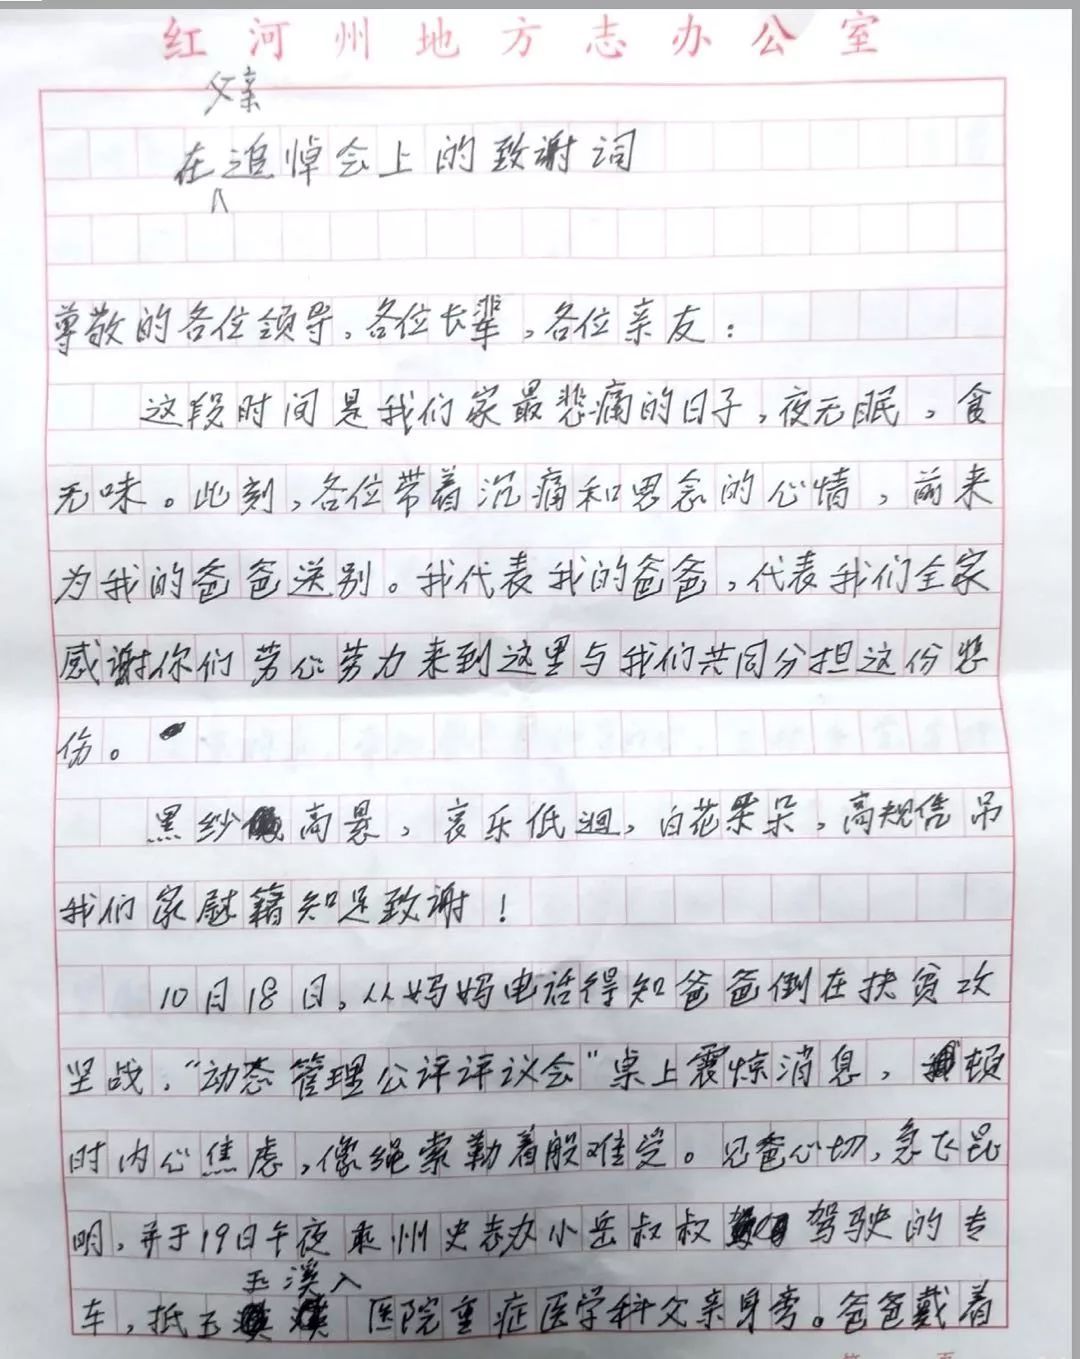 红河州地方志办公室
父亲
在追悼会上的致谢词
尊敬的各位领导,各位长辈,各位亲友:
这段时间是我们家最悲痛的日子,夜无眠,食
无味。此刻,各位带着沉痛和思念的心情,前来
为我的爸爸送别。我代表我的爸爸,代表我们全家
感谢你们劳心劳力来到这里与我们共同分担这份悲
伤。
黑纱高悬,哀乐低迴,白花朵,高规凭吊
我们家慰籍知足致谢!
10月18日,从妈妈电话得知爸爸倒在扶贫攻
坚战,“动态管理公评评议会”桌上震惊消息,顿
时内心焦虑,像绳索勒着般难受。见爸心切,急飞昆
明,并于19日午夜乘州史志办小岳叔叔驾驶的专
玉溪入
车,抵医院重症医学科父亲身旁。爸爸戴着